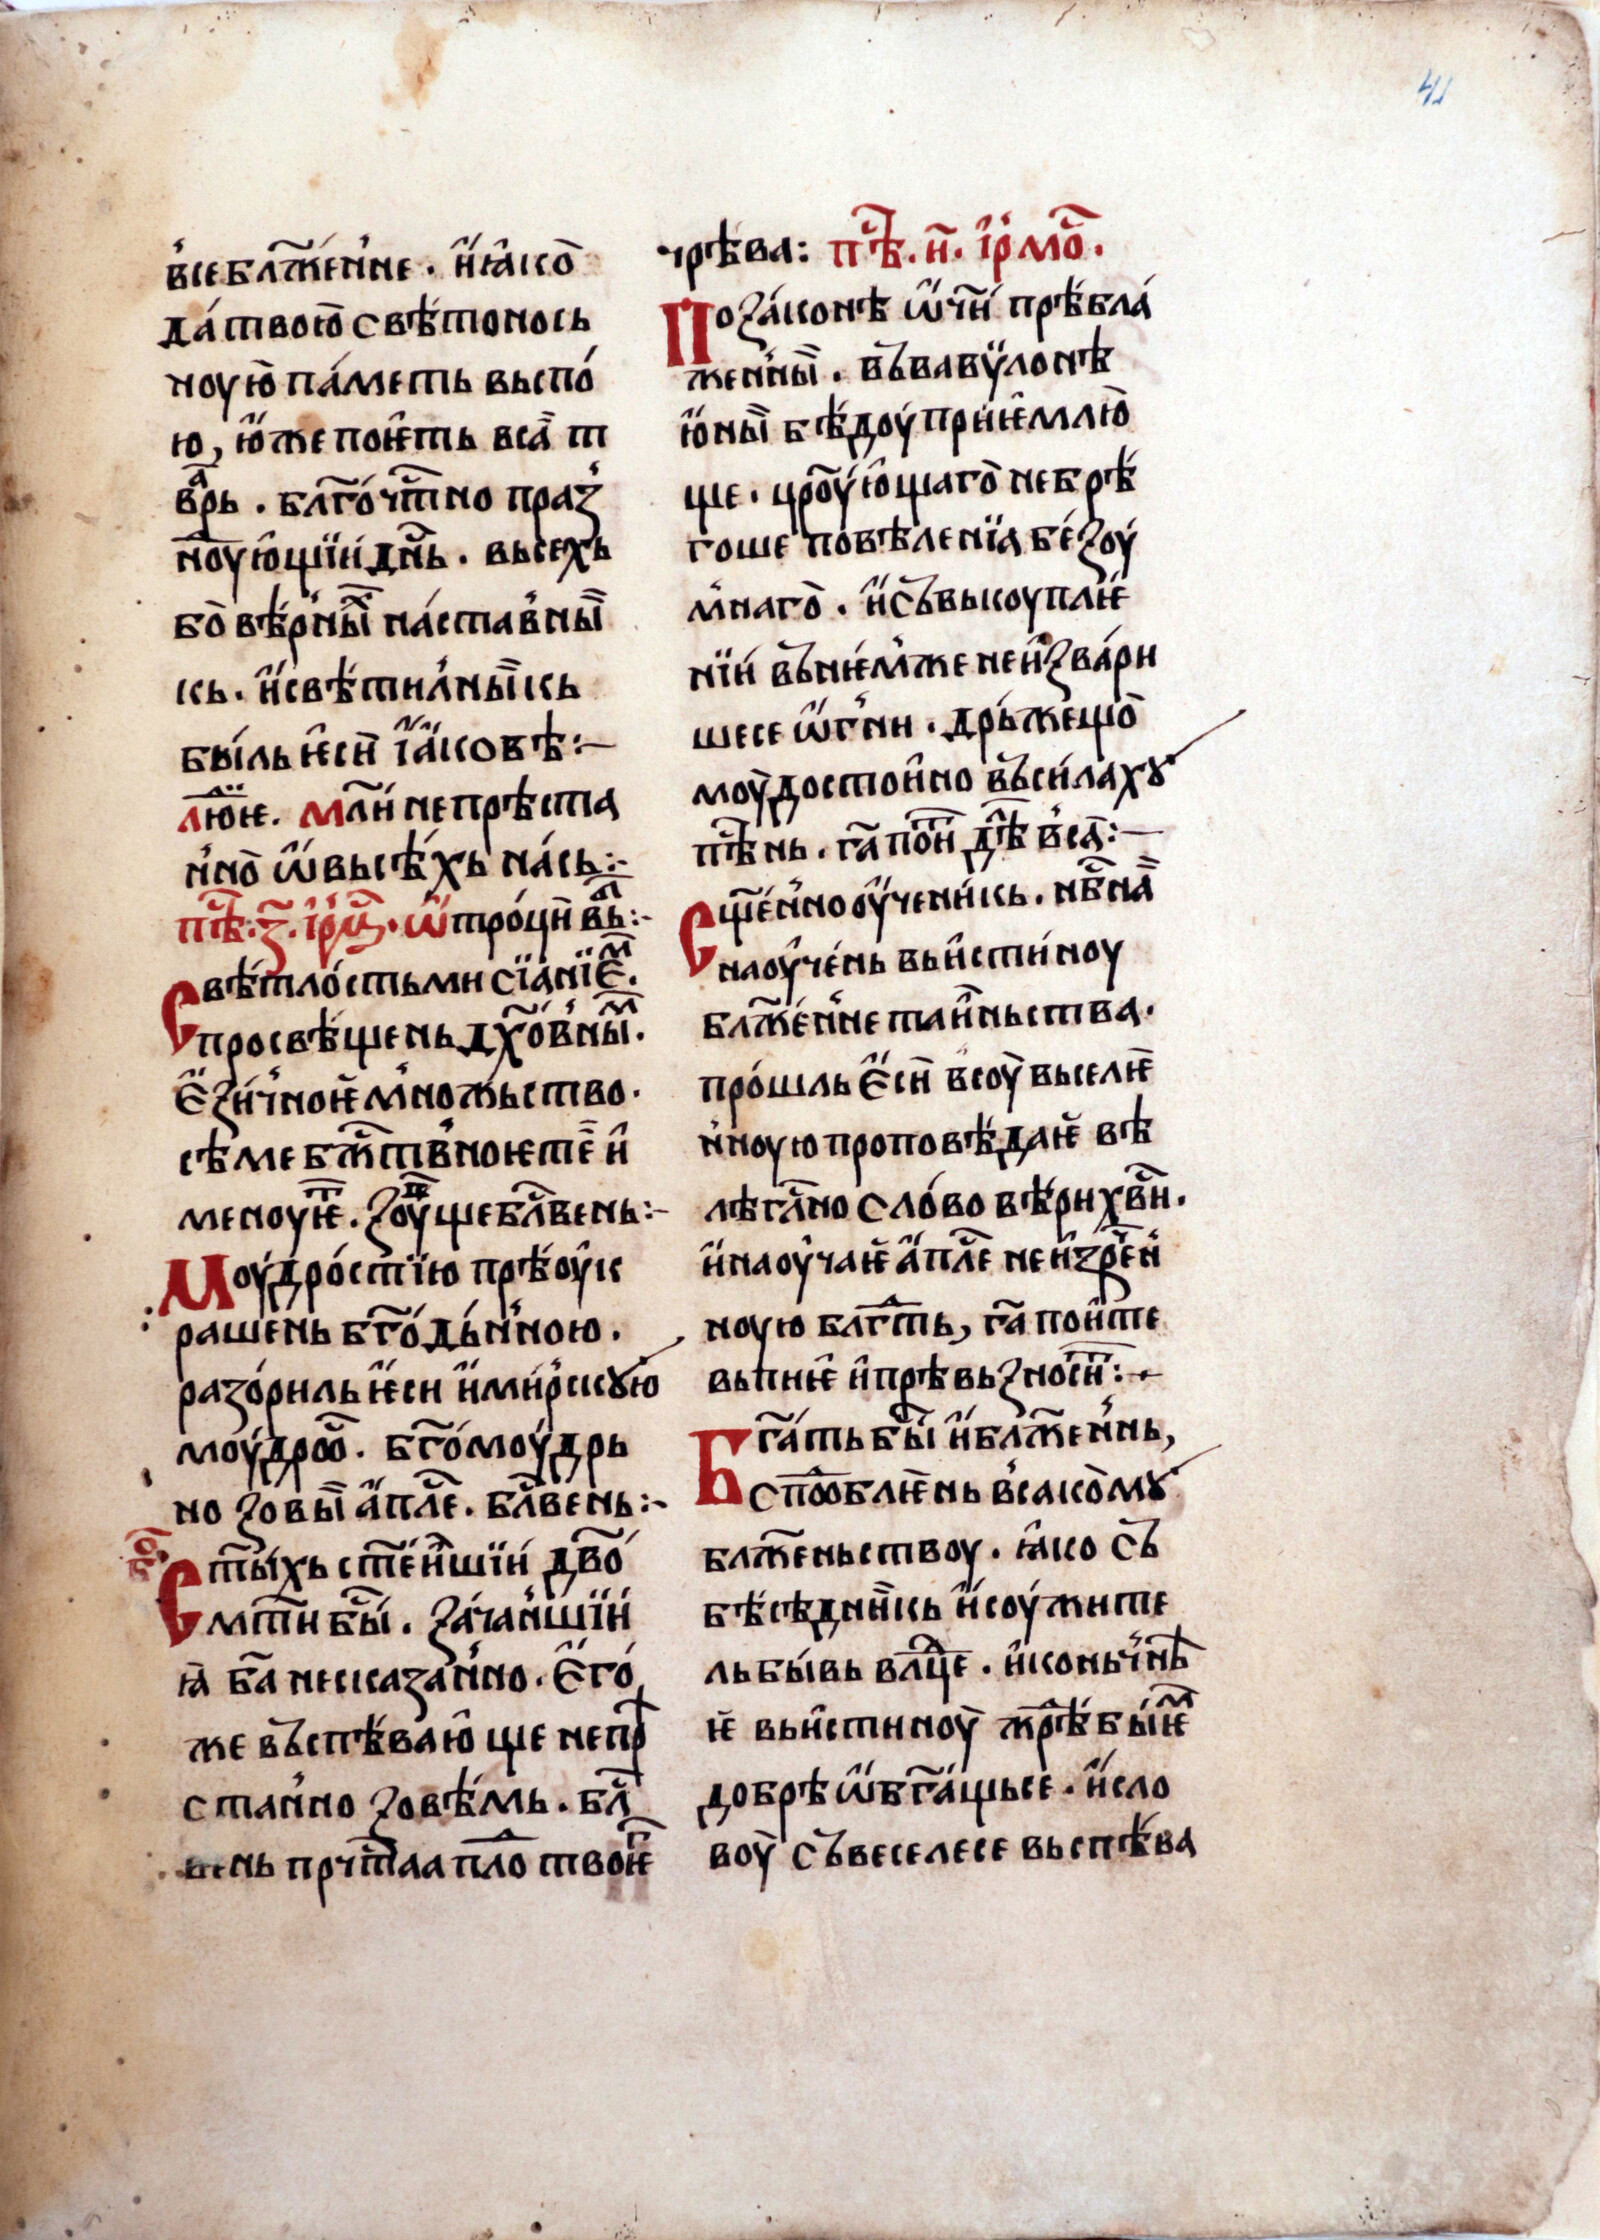 41
в҆се бл҃же́н꙽не . и҆ ꙗ҆ко̀
да́ твою̀ свѣтонось
ноую̀ па́меть выспо́
ю, ю҆же поѥ҆ть вса̀ т
вⷶрь . бл҃го́чⷭ҇тно праз꙽
ноую҆щїи дн҃ь . высехь
бо̀ вѣ́рныⷯ наставны
кь . и҆ свѣ́тил꙽ныкь
бы́ль ѥ҆сѝ і҆ꙗ҆ковѣ:~
лю̑ѥ . мл҃и непрѣста
н꙽но̀ ѡ҆ высѣ́хь на́сь:~
пⷭ҇ѣ . з҃ . і҆рмⷭ҇ . ѿро́ци вьⷡ:~
свѣ́тло́стьми сїа́нїеⷨ .
просвѣ́щень дх҃о́в꙽ныⷨ .
є҆зи́ч꙽ноѥ м꙽ножьство .
сѣме бж҃тв꙽ноѥ тѐ и҆
меноуѥⷮ . зоⷡущебл҃вень:~
моудро́стїю прѣоу҆к
рашень бг҃о́дь́н꙽ною .
разо́риль ѥ҆си и҆ми́р꙽скꙋю
моу́дроⷭ҇ . бг҃о́моу́дрь
но зовы̀ а҆пⷭ҇ле . бл҃вень:~
бо҃
ст҃ы́хь ст҃е́н꙽шїи дв҃о́
мт҃и бы̀ . зача́н꙽шїи
ꙗ҆ ба҃ несказа́н꙽но . є҆го́
же въспѣ́ваю҆ще непр
стан꙽но зовѣ́мь . бл҃
вень прчⷭ҇таа пло̀ твоѥⷢ
чрѣ́ва: пⷭ҇ѣ . и҃ . і҆рмоⷭ҇ .
По за́конѣ ѿчи прѣбла́
жен꙽ны . въ вавѷлонѣ
ю҆ны бѣдоу́ приѥ҆млю̀
ще . цр҃оу́ю҆щаго̀ небрѣ
гоше повѣленїа бе́зоу́
м꙽наго̀ . и҆ съвькоу плѥ҆
нїи въ нѥм꙽же не и҆зва́ри
шесе ѡ҆г꙽ни . дрь́жещо̀
моу̀ достои҆но въси́лахꙋ
пⷭ҇ѣнь . га҃ поиⷮ дⷭ҇ѣ в꙽са̀:~
сщ҃е́н꙽но оу҆чени́кь . нб҃на
наоу҆че́нь вьи҆сти́ноу
блж҃е́н꙽не таи҆ньства .
про́шль є҆сѝ в꙽соу̀ вьселѥ҆
н꙽ноую проповѣ́даѥ҆ вѣ
лѣгⷧ҇а́но сло́во вѣ́ри хвⷭ҇и .
и҆ наоу҆чаѥ҆ а҆пⷭ҇ле неи҆зре́н꙽
ноую блгⷣть, га҃ пои҆те
выпиѥ҆ и҆ прѣвьзносиⷮ:~
Бг҃ать бы̀ и҆ блж҃ен꙽нь,
спⷣобл́ѥнь в꙽сако̀мꙋ
блж҃еньствоу . ꙗ҆ко съ
бѣ́сѣдни́кь и҆ соу́жите
ль бы́вь влцⷣе . и҆ коньч꙽нѣ
ѥ҆ вьи҆стиноу̀ жрⷣѣбы́ѥⷨ
добрѣ ѡ҆бг҃а́щьсе . и҆ сло
воу̀ съвеселесе выспѣ́ва